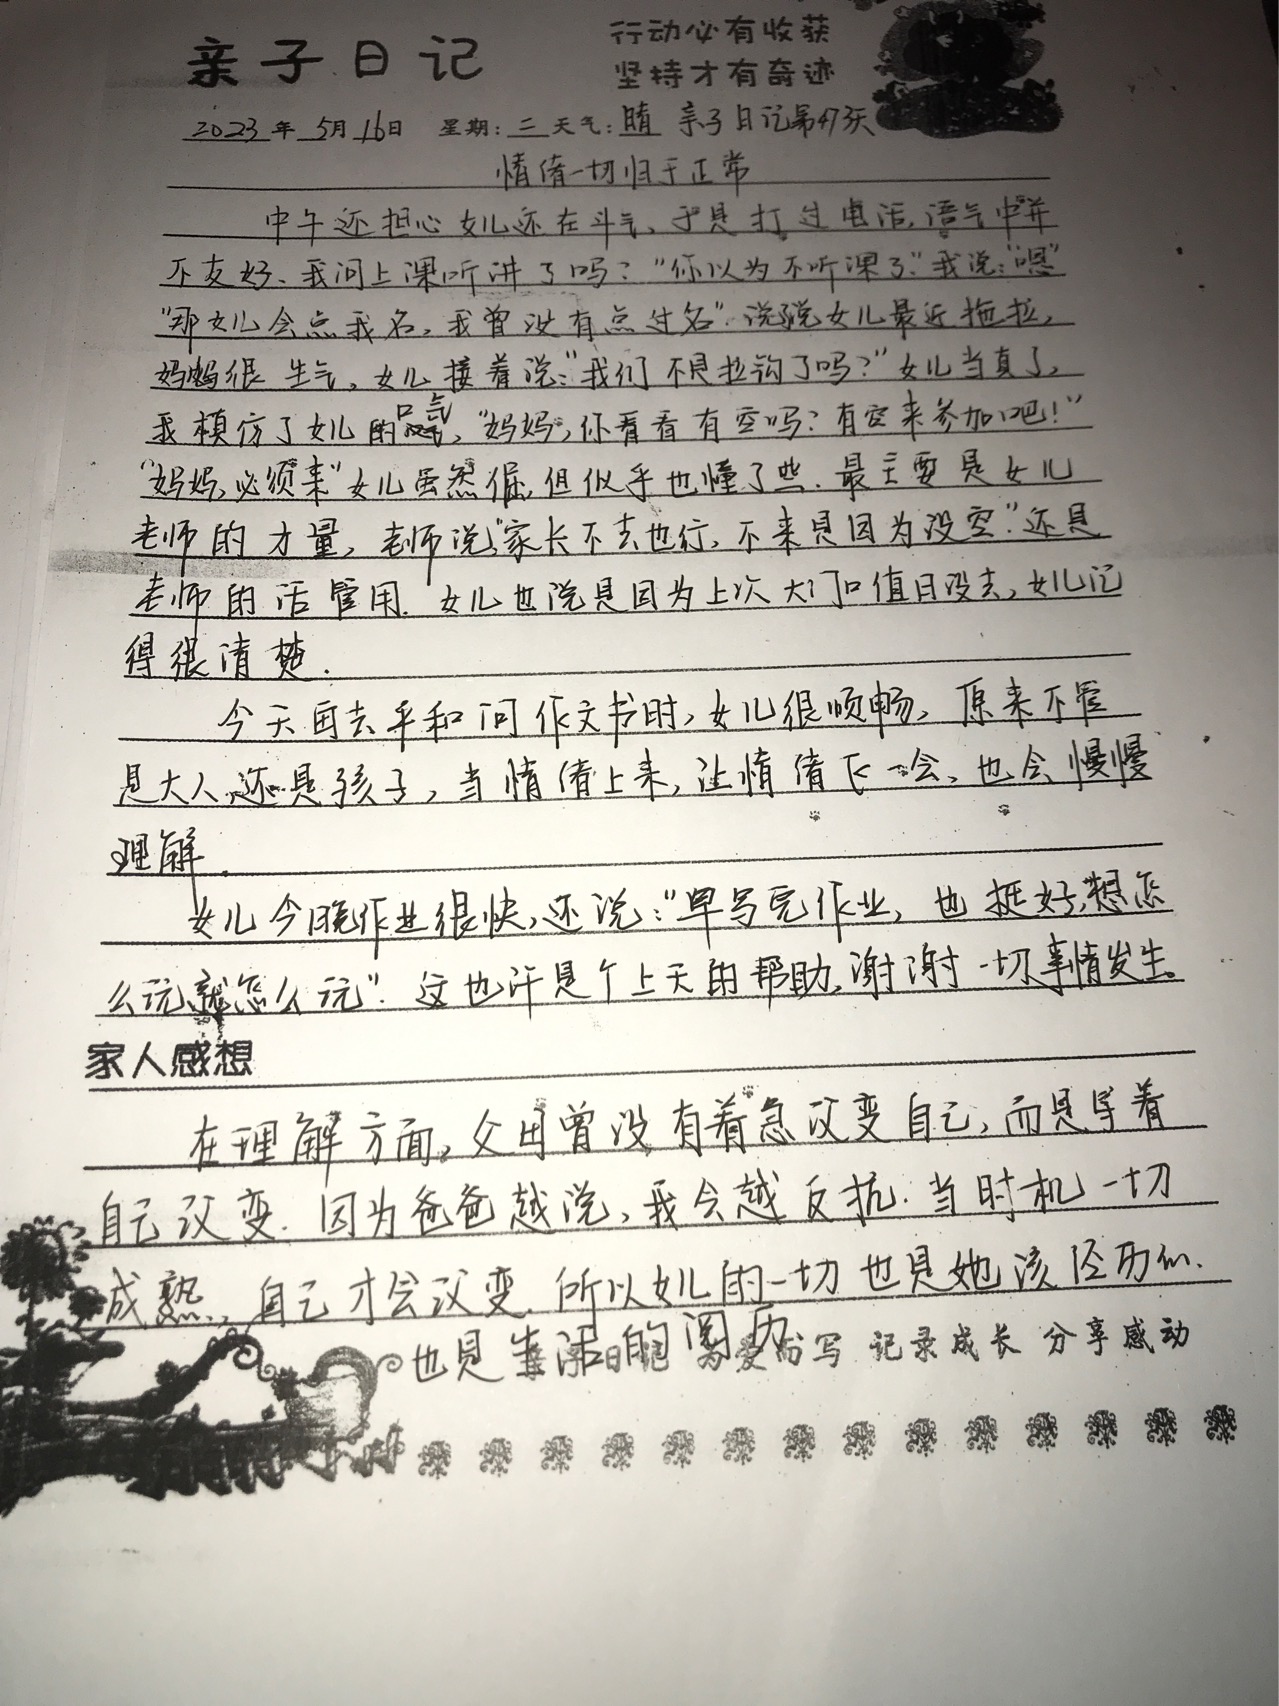 亲子日记
行动必有收获
坚持才有奇迹
2023年 5月16日 星期:二 天气:晴 亲子日记第47天
情绪一切归于正常
中午还担心女儿还在斗气、于是打过电话,语气中并
不友好、我问上课听讲了吗?“你以为不听课了”我说:“嗯”
“那女儿会点我名,我曾没有点过名”.说说女儿最近拖拉,
妈妈很生气,女儿接着说:“我们不是拉钩了吗?”女儿当真了,
我模仿了女儿的口气,“妈妈,你看看有空吗?有空来参加吧!”
“妈妈,必须来”女儿虽然倔,但似乎也懂了些.最主要是女儿
老师的力量,老师说,“家长不去也行,不来是因为没空”.还是
老师的话管用.女儿也说是因为上次大门口值日没去,女儿记
得很清楚.
今天再去平和问作文书时,女儿很顺畅,原来不管
是大人,还是孩子,当情绪上来,让情绪飞一会,也会慢慢
理解.
女儿今晚作业很快,还说:“早写完作业,也挺好,想怎
么玩就怎么玩”.这也许是个上天的帮助,谢谢一切事情发生。
家人感想
在理解方面,父母曾没有着急改变自己,而是导着
自己改变.因为爸爸越说,我会越反抗.当时机一切
成熟,自己才会改变.所以女儿的一切也是她该经历的.
也是生活的阅历
书写 记录成长 分享感动